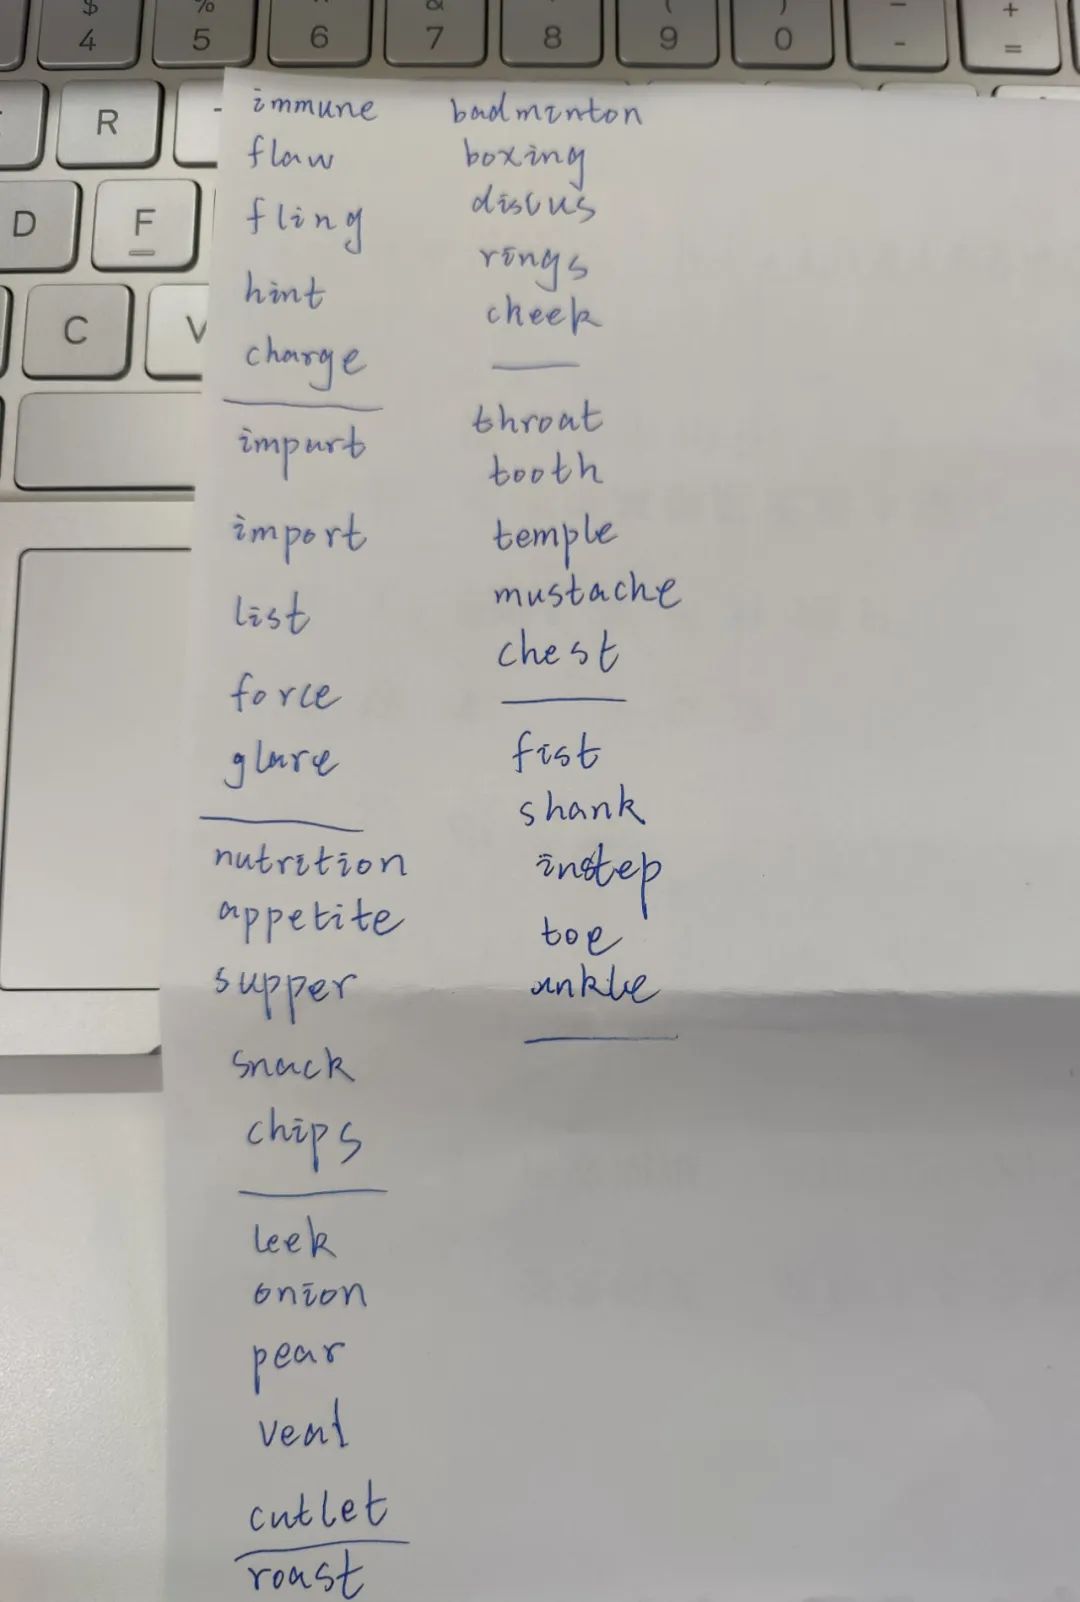 $ % ^ & * ( ) — +
4 5 6 7 8 9 0 - =
R
D F
C V
immune
flaw
fling
hint
charge
impart
import
list
force
glare
nutrition
appetite
supper
snack
chips
leek
onion
pear
veal
cutlet
roast
badminton
boxing
discus
rings
cheek
throat
tooth
temple
mustache
chest
fist
shank
instep
toe
ankle